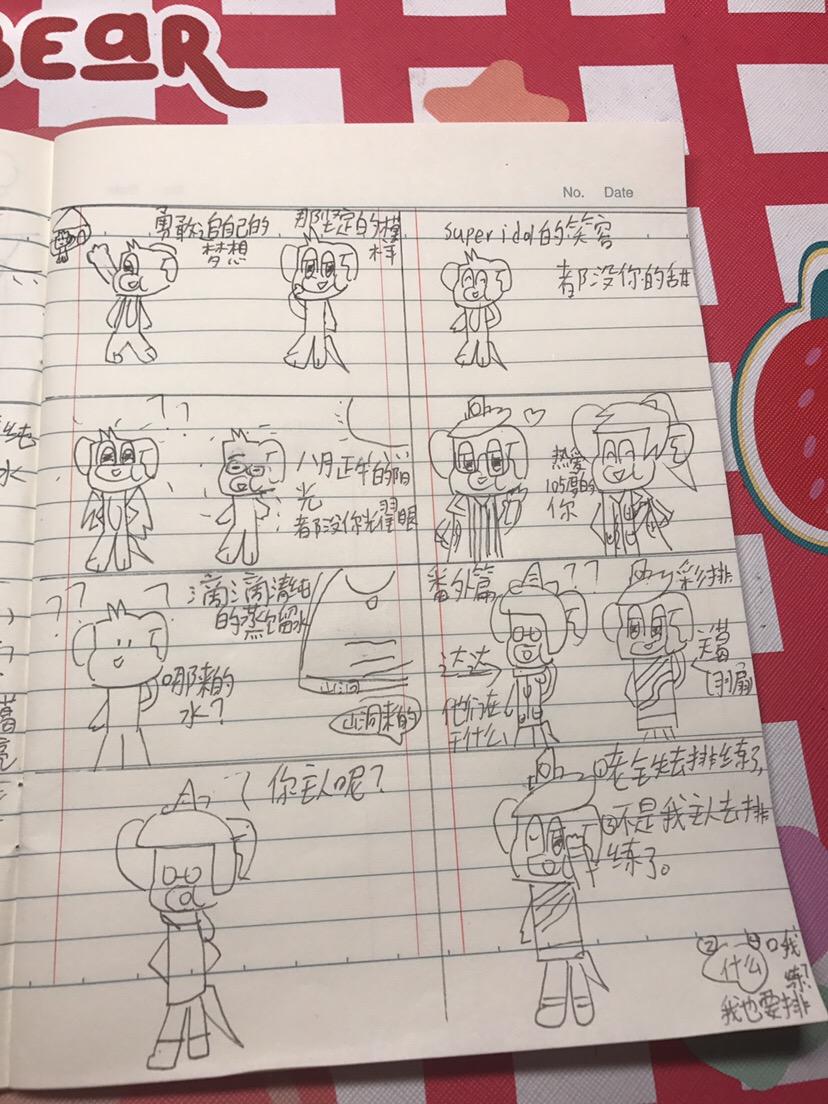 BEAR
No. Date
勇敢追自己的
梦想
那坚定的模
样
super idol的笑容
都没你的甜
纯
水
? ?
八月正午的阳
光
都没你耀眼
热爱
105度的
你
? ? ?
滴滴清纯
的蒸馏水
哪来的
水?
山洞
山洞来的
番外篇
? ?
彩排
达达
他们在
干什么
? 你主人呢?
①老宝失去排练了,
③不是我主人去排
练了。
②
什么
④
口我
练?
我也要排